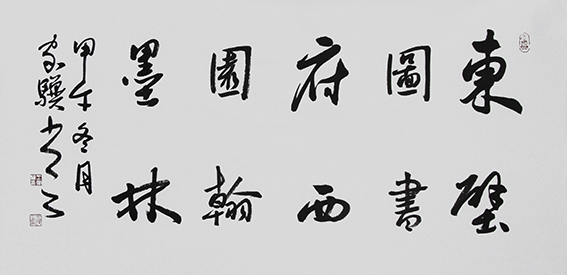 東壁
圖書
府西
園翰
墨林
甲午冬月
驥書之